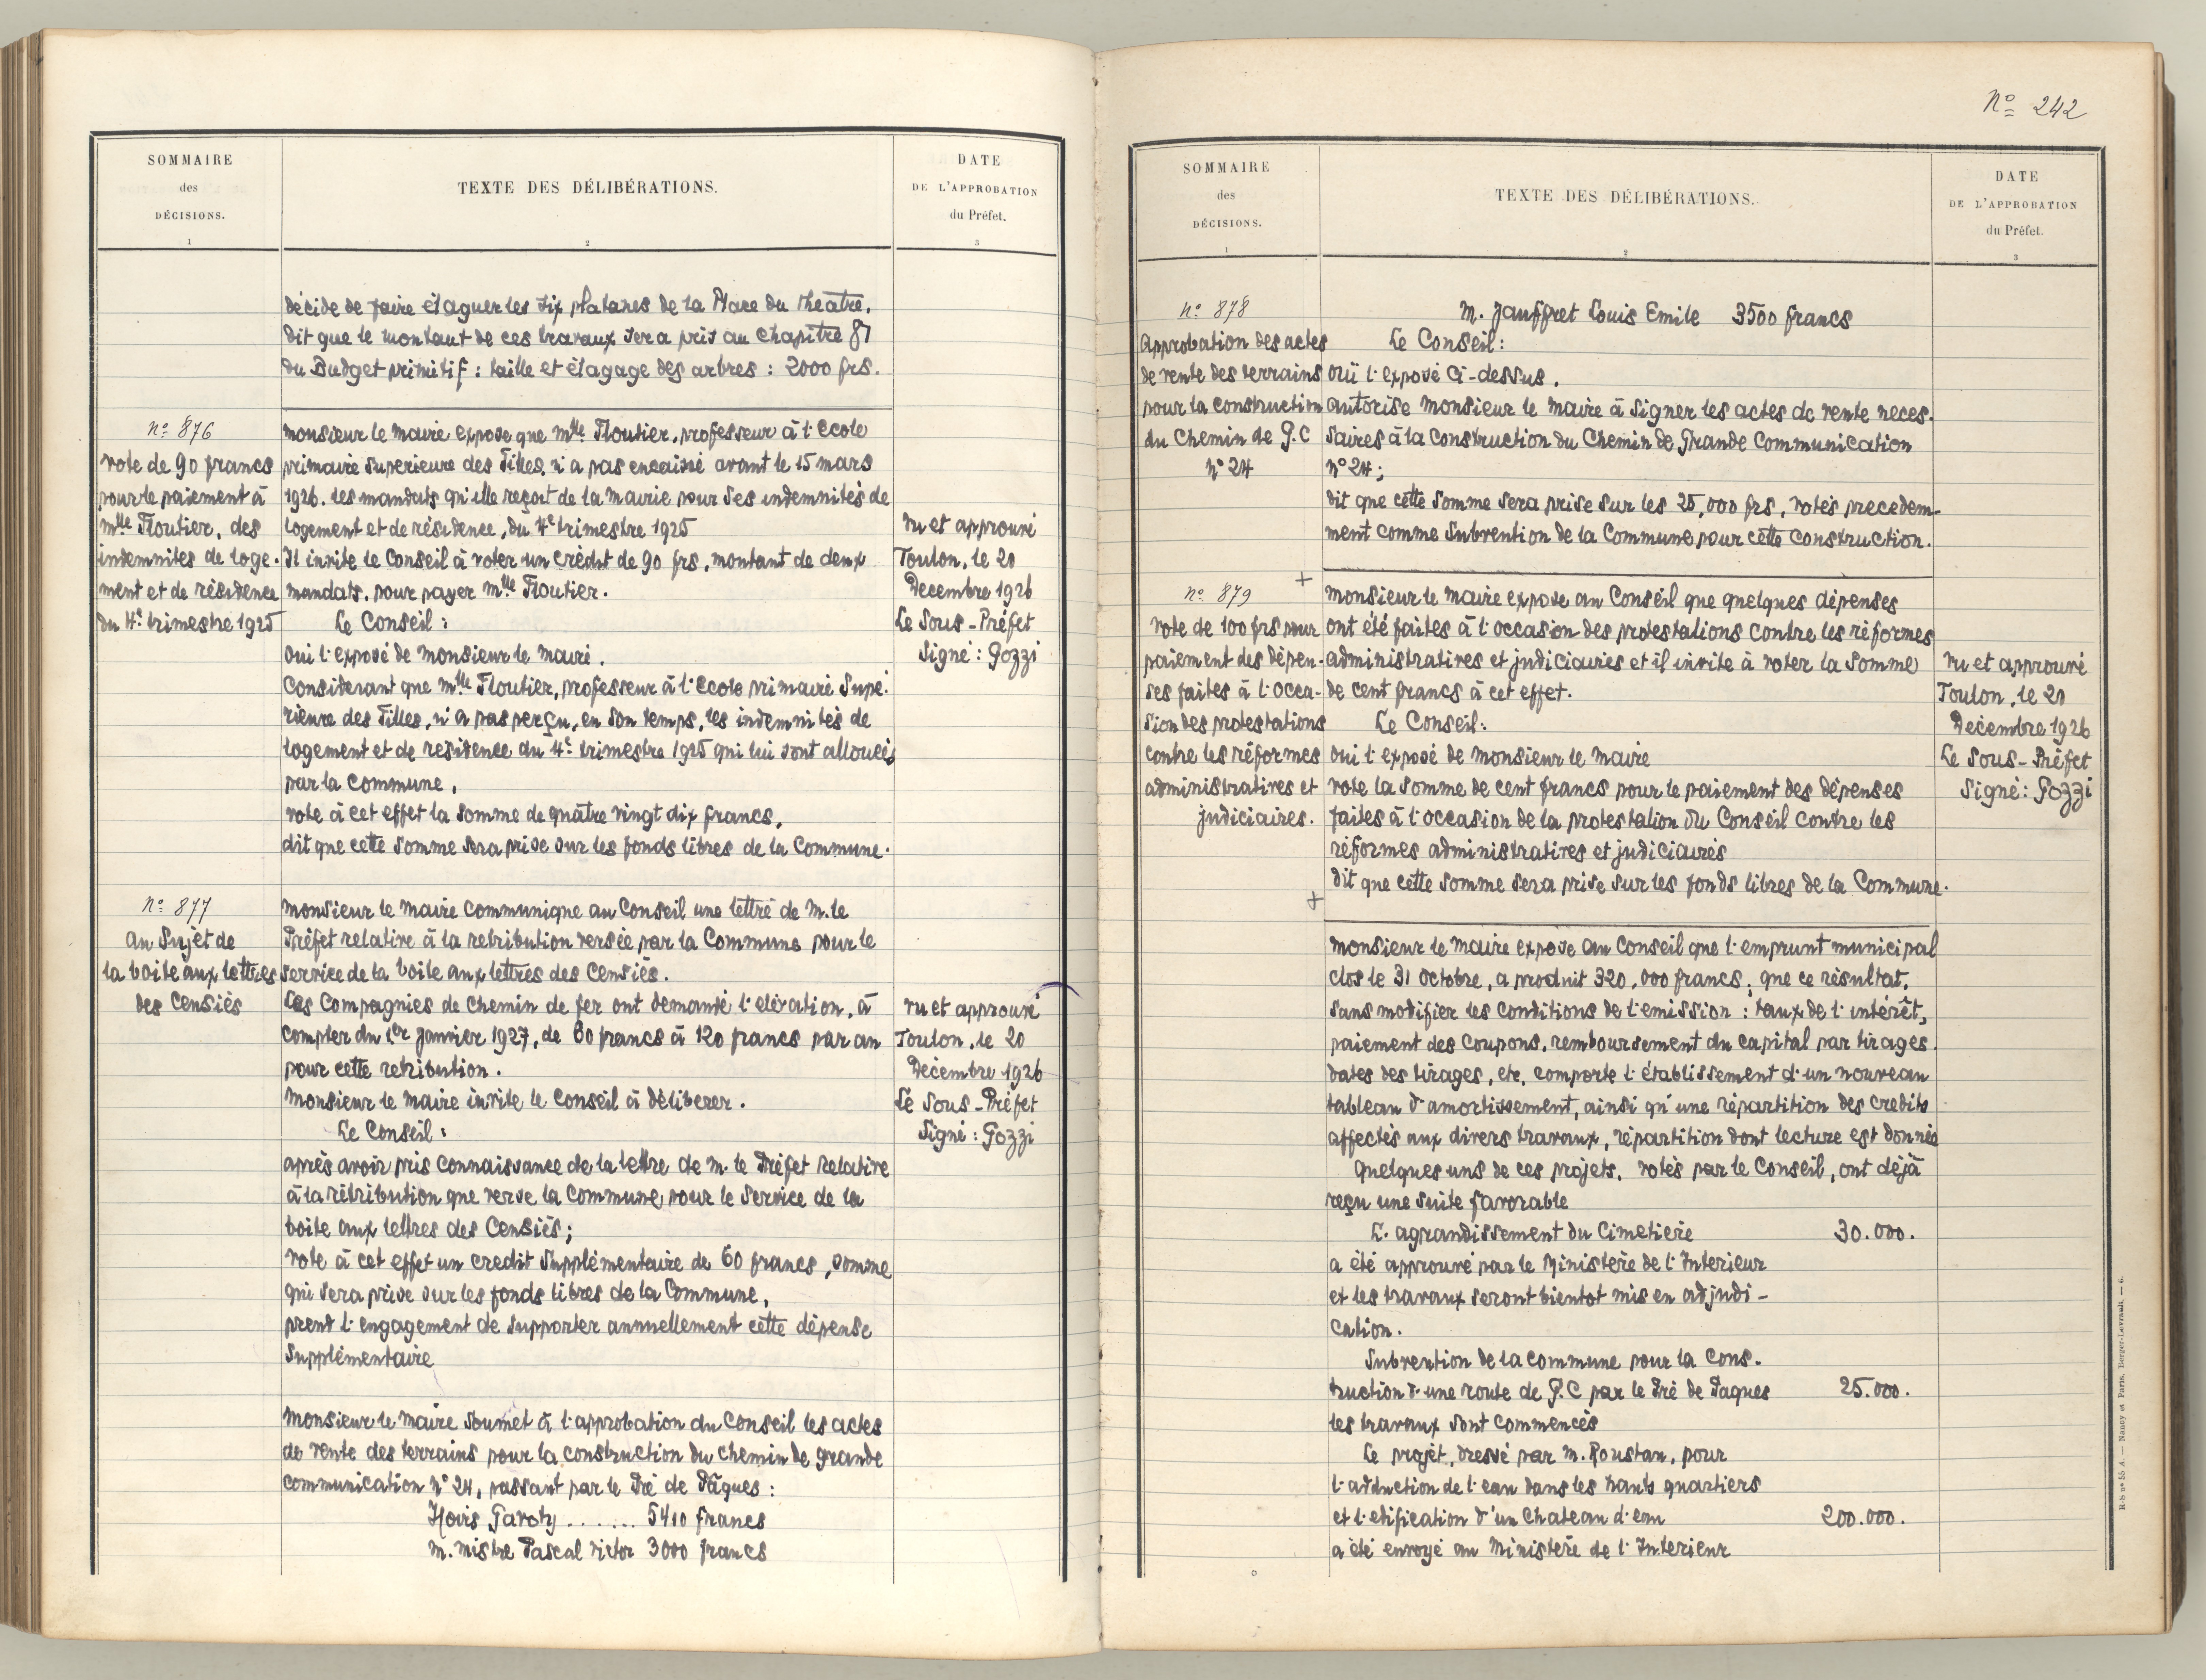 SOMMAIRE
des
DÉCISIONS.
1
TEXTE DES DÉLIBÉRATIONS.
2
DATE
DE L'APPROBATION
du Préfet.
3
décide de faire élaguer les six platanes de la Place du théatre.
dit que le montant de ces travaux sera pris au chapitre 87
du Budget primitif : taille et élagage des arbres : 2000 frs.
nº 876
vote de 90 francs
pour le paiement à
Mlle Floutier, des
indemnites de loge-
ment et de résidence
du 4e trimestre 1925
Monsieur le Maire expose que Mlle Floutier, professeur à l'école
primaire superieure des Filles, n'a pas encaissé avant le 15 mars
1926, les mandats qu'elle reçoit de la Mairie pour ses indemnités de
logement et de résidence, du 4e trimestre 1925
Il invite le Conseil à voter un crédit de 90 frs, montant de deux
mandats, pour payer Mlle Floutier.
Le Conseil :
Oui l'exposé de Monsieur le Maire.
Considerant que Mlle Floutier, professeur à l'école primaire Supé-
rieure des Filles, n'a pas perçu, en son temps, les indemnités de
logement et de résidence du 4e trimestre 1925 qui lui sont allouées
par la Commune,
vote à cet effet la somme de quatre vingt dix francs,
dit que cette somme sera prise sur les fonds libres de la Commune.
Vu et approuvé
Toulon, le 20
Decembre 1926
Le Sous-Préfet
Signé : Gozzi
nº 877
au Sujet de
la boite aux lettres
des Censiés
Monsieur le Maire communique au Conseil une lettre de M. le
Préfet relative à la retribution versée par la Commune pour le
service de la boite aux lettres des Censiés.
Les Compagnies de chemin de fer ont demandé l'elévation, à
compter du 1er janvier 1927, de 60 francs à 120 francs par an
pour cette retribution.
Monsieur le Maire invite le Conseil à déliberer.
Le Conseil :
après avoir pris connaissance de la lettre de M. le Préfet relative
à la rétribution que verse la Commune pour le service de la
boite aux lettres des Censiés;
vote à cet effet un credit Supplémentaire de 60 francs, somme
qui sera prise sur les fonds libres de la Commune,
prend l'engagement de supporter annuellement cette dépense
Supplémentaire
Vu et approuvé
Toulon, le 20
Décembre 1926
Le Sous-Préfet
Signé : Gozzi
Monsieur le Maire soumet à l'approbation du Conseil les actes
de vente des terrains pour la construction du chemin de grande
communication n° 24, passant par le Pré de Pâques :
Hoirs Garoty ....... 5410 francs
M. Mistre Pascal Victor 3000 francs
Nº 242
SOMMAIRE
des
DÉCISIONS.
1
TEXTE DES DÉLIBÉRATIONS.
2
DATE
DE L'APPROBATION
du Préfet.
3
nº 878
Approbation des actes
de vente des terrains
pour la construction
du Chemin de G.C
n° 24
M. Jauffret Louis Emile 3500 francs
Le Conseil :
Oüi l'exposé ci-dessus.
autorise Monsieur le Maire à signer les actes de vente neces-
saires à la construction du Chemin de Grande Communication
n° 24;
dit que cette somme sera prise sur les 25,000 frs, votés precedem-
ment comme Subvention de la Commune pour cette construction.
+
nº 879
vote de 100 frs pour
paiement des dépen-
ses faites à l'occa-
sion des protestations
contre les réformes
administratives et
judiciaires.
Monsieur le Maire expose au Conseil que quelques dépenses
ont été faites à l'occasion des protestations contre les réformes
administratives et judiciaires et il invite à voter la somme
de cent francs à cet effet.
Le Conseil :
Oui l'exposé de Monsieur le Maire
vote la somme de cent francs pour le paiement des dépenses
faites à l'occasion de la protestation du Conseil contre les
réformes administratives et judiciaires
dit que cette somme sera prise sur les fonds libres de la Commune.
+
Vu et approuvé
Toulon, le 20
Décembre 1926
Le Sous-Préfet
Signé : Gozzi
Monsieur le Maire expose au Conseil que l'emprunt municipal
clos le 31 octobre, a produit 320.000 francs; que ce résultat,
sans modifier les conditions de l'emission : taux de l'intérêt,
paiement des coupons, remboursement du capital par tirages,
dates des tirages, etc, comporte l'établissement d'un nouveau
tableau d'amortissement, ainsi qu'une répartition des credits
affectés aux divers travaux, répartition dont lecture est donnée
Quelques uns de ces projets, votés par le Conseil, ont déjà
reçu une suite favorable
L'agrandissement du Cimetière 30.000.
a été approuvé par le Ministère de l'Interieur
et les travaux seront bientot mis en adjudi-
cation.
Subvention de la commune pour la cons-
truction d'une route de G.C par le Pré de Paques 25.000.
les travaux sont commencés
Le projet, dressé par M. Roustan, pour
l'adduction de l'eau dans les hauts quartiers
et l'edification d'un chateau d'eau 200.000.
a été envoyé au Ministère de l'Interieur
R-b nº 55 A. — Nancy et Paris, Berger-Levrault. — 6.